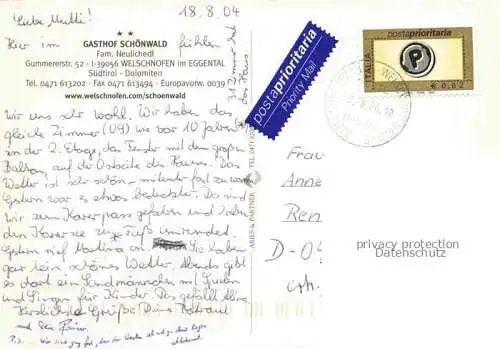 18.8.04
Liebe Mutti!
Hier im
GASTHOF SCHÖNWALD
Fam. Neulichedl
Gummererstr. 52 - I-39056 WELSCHNOFEN im EGGENTAL
Südtirol - Dolomiten
Tel. 0471 613202 - Fax 0471 613494 - Europavorw. 0039
www.welschnofen.com/schoenwald
fühlen
31 Zimmer hat
das Haus
wir uns sehr wohl. Wir haben das
gleiche Zimmer (09) wie vor 10 Jahren
in der 2. Etage, das Fenster mit dem großen
Balkon, auf der Ostseite des Hauses. Das
Wetter ist sehr schön - mitunter fast zu warm.
Gestern war es etwas bedeckter. Da sind
wir zum Karerpass gefahren und haben
den Karersee zu Fuß umrundet.
Gestern rief Martina an. Sie haben
gar kein schönes Wetter. Abends gibt
es dort ein Sandmännchen mit Spielen
und Singen für Kinder. Das gefällt
Herzlichste Grüße Deine Waltraud
und Dein Rainer.
P.S. Wir sind froh, dass
postaprioritaria
Priority Mail
postaprioritaria
ITALIA
P
€ 0,62
Frau
Anne
Ren
D-0
privacy protection
Datenschutz